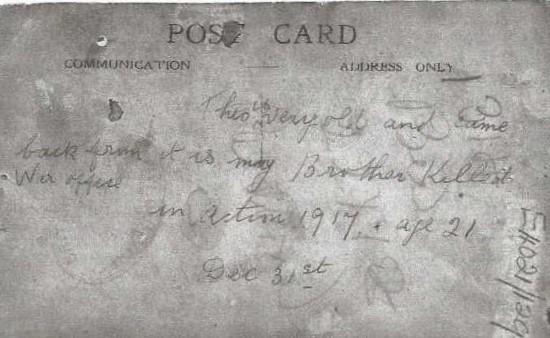 POST CARD
COMMUNICATION ADDRESS ONLY
This is very old and came
back from it is my Brother Killed
War office
in action 1917. age 21
Dec 31st